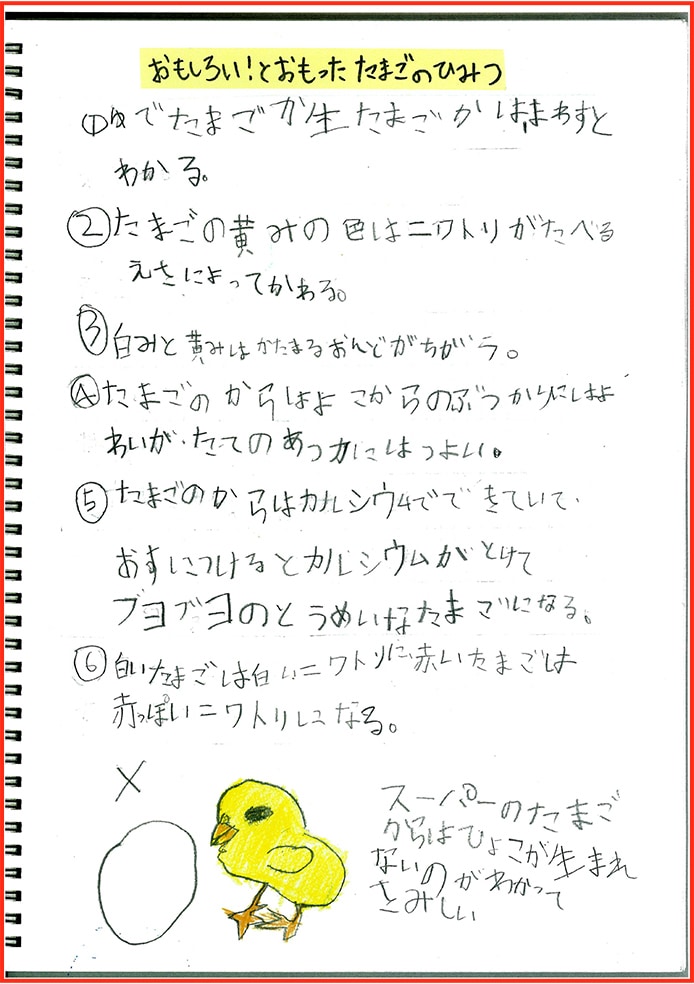 おもしろい!とおもったたまごのひみつ
①ゆでたまごか生たまごかはまわすと
わかる。
②たまごの黄みの色はニワトリがたべる
えさによってかわる。
③白みと黄みはかたまるおんどがちがう。
④たまごのからはよこからのぶつかりにはよ
わいが、たてのあつ力にはつよい。
⑤たまごのからはカルシウムでできていて、
おすにつけるとカルシウムがとけて
ブヨブヨのとうめいなたまごになる。
⑥白いたまごは白いニワトリに、赤いたまごは
赤っぽいニワトリになる。
×
スーパーのたまご
からはひよこが生まれ
ないのがわかって
さみしい